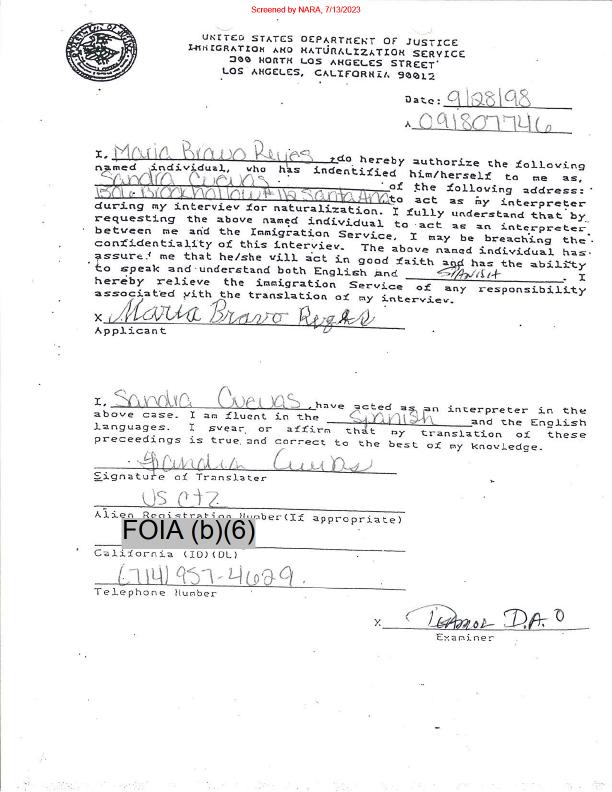 Screened by NARA, 7/13/2023
UNITED STATES DEPARTMENT OF JUSTICE
IMMIGRATION AND NATURALIZATION SERVICE
300 NORTH LOS ANGELES STREET
LOS ANGELES, CALIFORNIA 90012
Date: 9/28/98
A 091807746
I, Maria Bravo Reyes, do hereby authorize the following
named individual, who has indentified him/herself to me as,
Sandra Cuevas of the following address:
Santa Ana to act as my interpreter
during my interview for naturalization. I fully understand that by
requesting the above named individual to act as an interpreter
between me and the Immigration Service, I may be breaching the
confidentiality of this interview. The above named individual has
assured me that he/she will act in good faith and has the ability
to speak and understand both English and SPANISH. I
hereby relieve the immigration Service of any responsibility
associated with the translation of my interview.
X Maria Bravo Reyes
Applicant
I, Sandra Cuevas, have acted as an interpreter in the
above case. I am fluent in the Spanish and the English
languages. I swear or affirm that my translation of these
preceedings is true and correct to the best of my knowledge.
Sandra Cuevas
Signature of Translater
US CTZ
Alien Registration Number(If appropriate)
FOIA (b)(6)
California (ID)(DL)
(714) 957-4629
Telephone Number
X D.A.O
Examiner